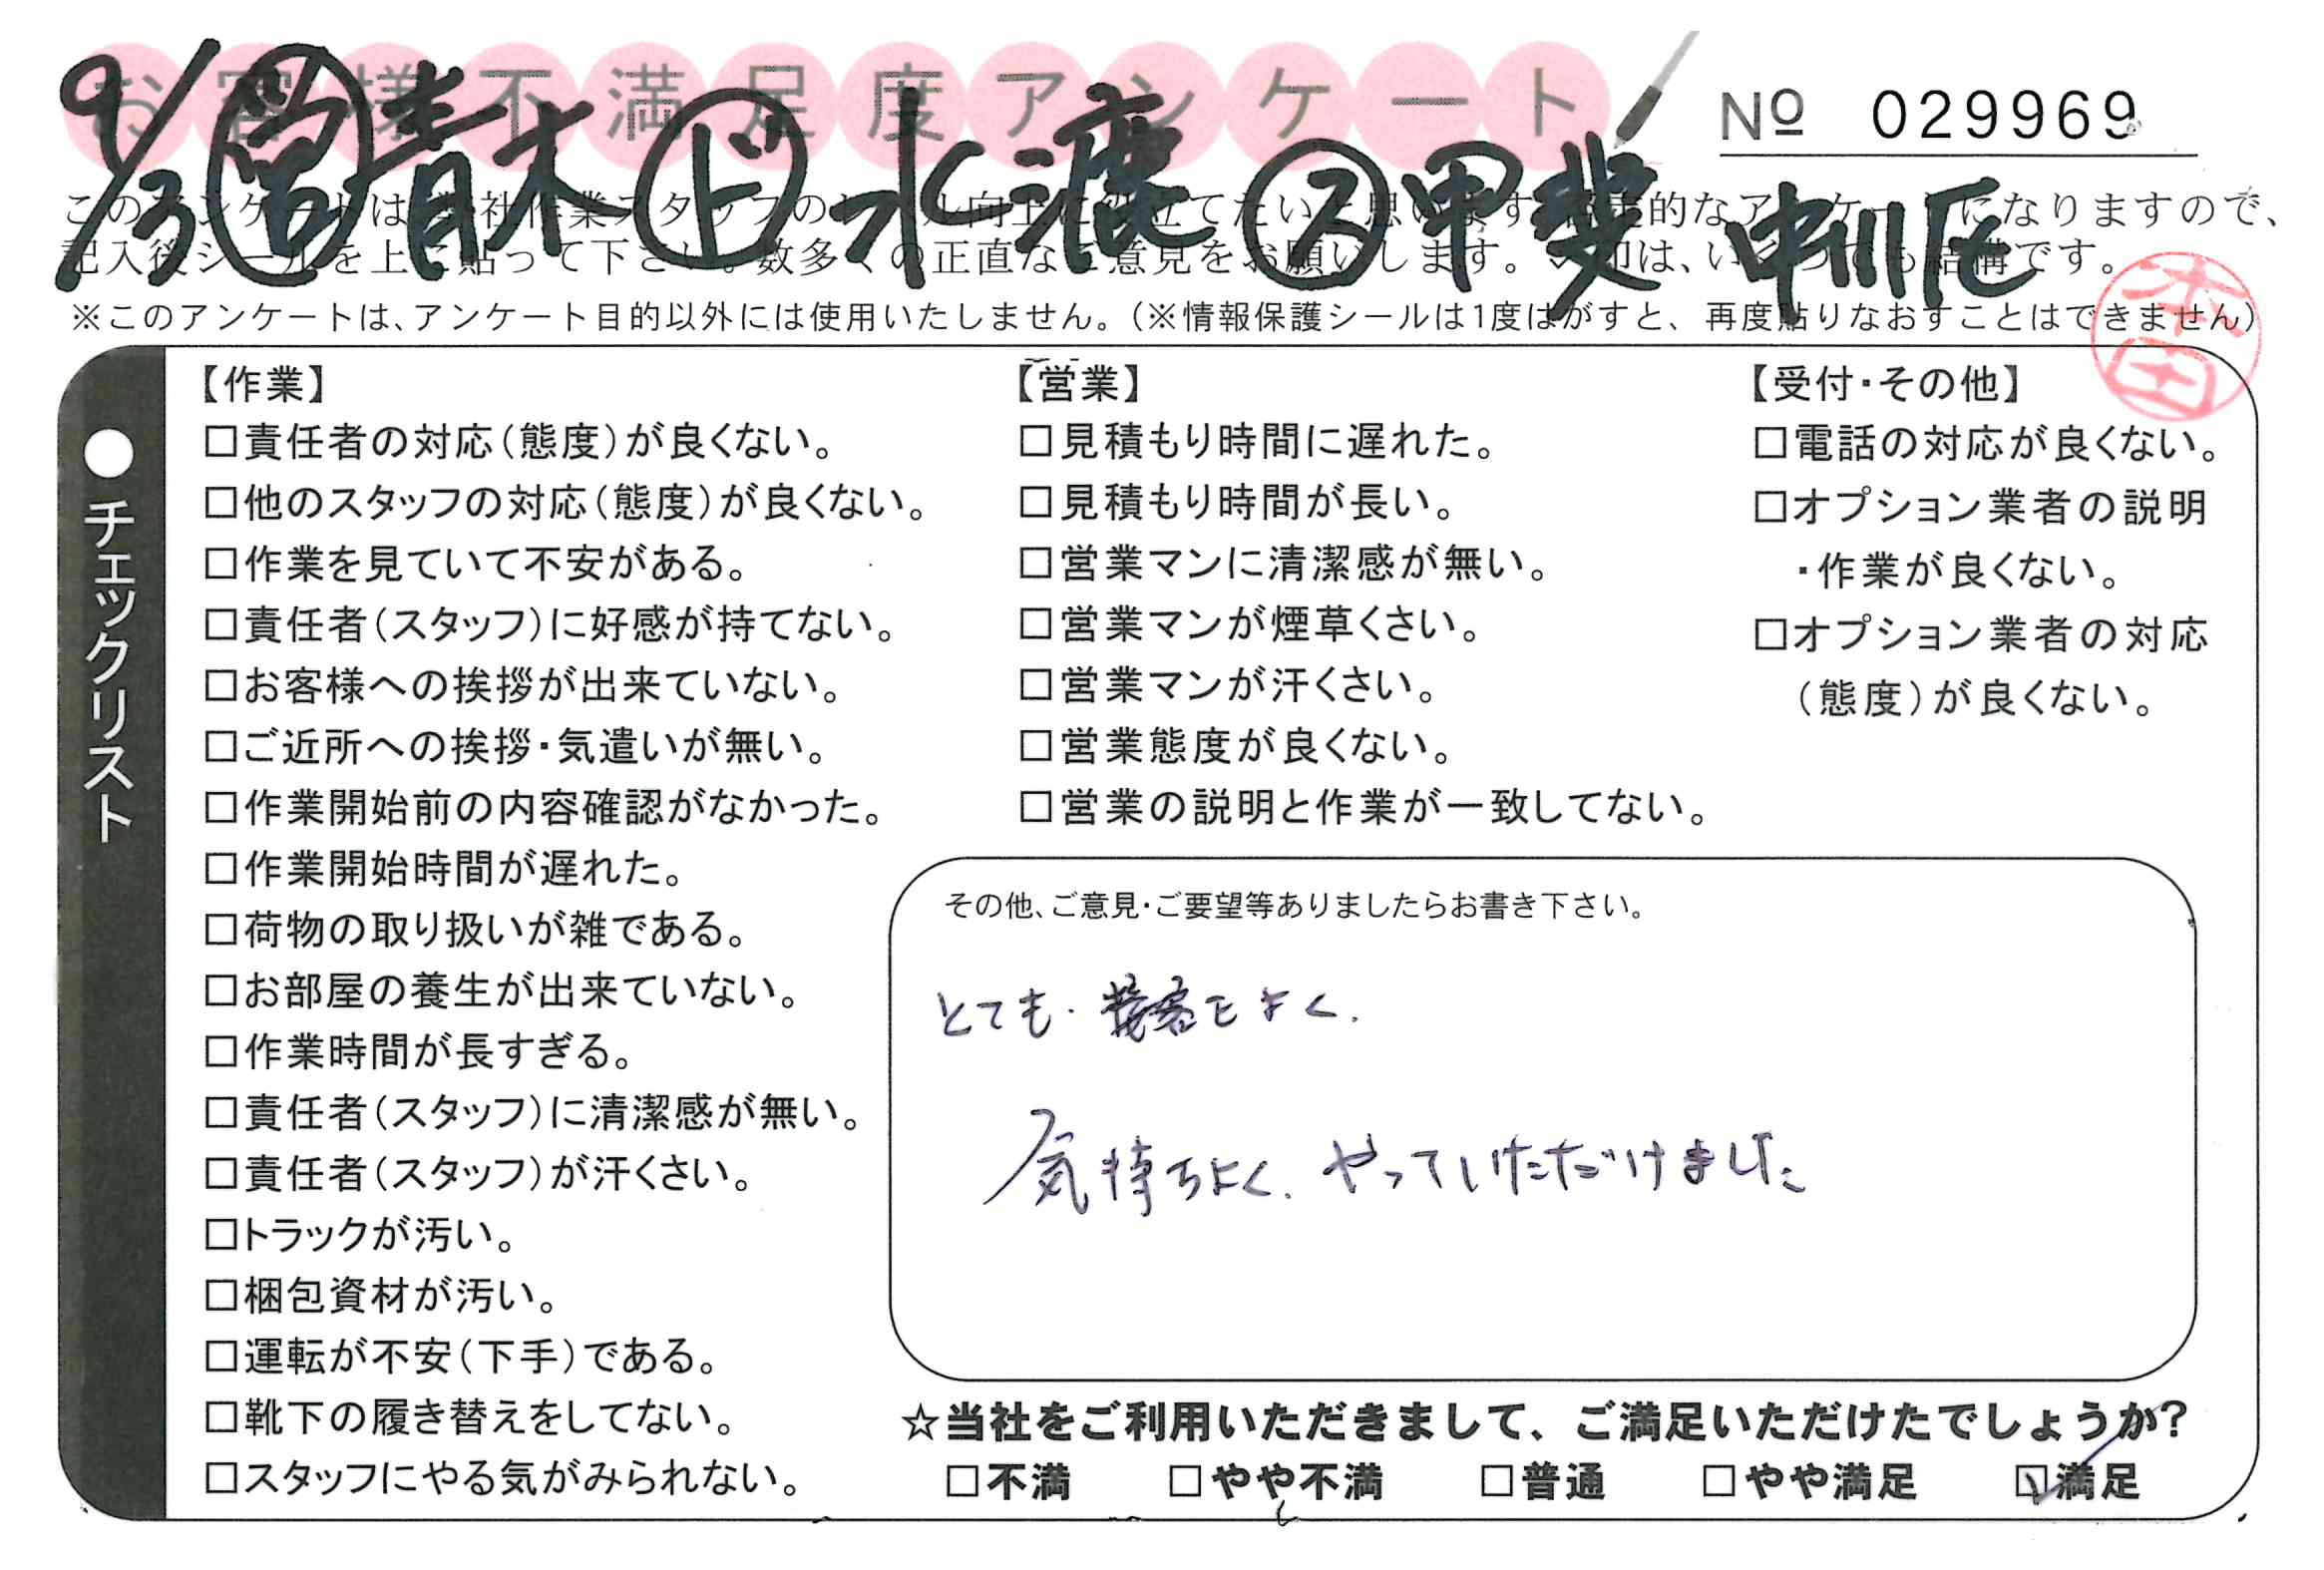 お客様不満足度アンケート
№ 029969
9/3 営 青木 ド 水漉 ス 甲斐 中川区
このアンケートは、弊社作業スタッフのレベル向上に役立てたいと思います。否定的なアンケートになりますので、
記入後シールを上に貼って下さい。数多くの正直なご意見をお願いします。✓印は、いくつでも結構です。
※このアンケートは、アンケート目的以外には使用いたしません。（※情報保護シールは1度はがすと、再度貼りなおすことはできません）
本田
●チェックリスト
【作業】
□責任者の対応（態度）が良くない。
□他のスタッフの対応（態度）が良くない。
□作業を見ていて不安がある。
□責任者（スタッフ）に好感が持てない。
□お客様への挨拶が出来ていない。
□ご近所への挨拶・気遣いが無い。
□作業開始前の内容確認がなかった。
□作業開始時間が遅れた。
□荷物の取り扱いが雑である。
□お部屋の養生が出来ていない。
□作業時間が長すぎる。
□責任者（スタッフ）に清潔感が無い。
□責任者（スタッフ）が汗くさい。
□トラックが汚い。
□梱包資材が汚い。
□運転が不安（下手）である。
□靴下の履き替えをしてない。
□スタッフにやる気がみられない。
【営業】
□見積もり時間に遅れた。
□見積もり時間が長い。
□営業マンに清潔感が無い。
□営業マンが煙草くさい。
□営業マンが汗くさい。
□営業態度が良くない。
□営業の説明と作業が一致してない。
【受付・その他】
□電話の対応が良くない。
□オプション業者の説明
・作業が良くない。
□オプション業者の対応
（態度）が良くない。
その他、ご意見・ご要望等ありましたらお書き下さい。
とても、接客もよく、
気持ちよく、やっていただけました
☆当社をご利用いただきまして、ご満足いただけたでしょうか？
□不満 □やや不満 □普通 □やや満足 ☑満足